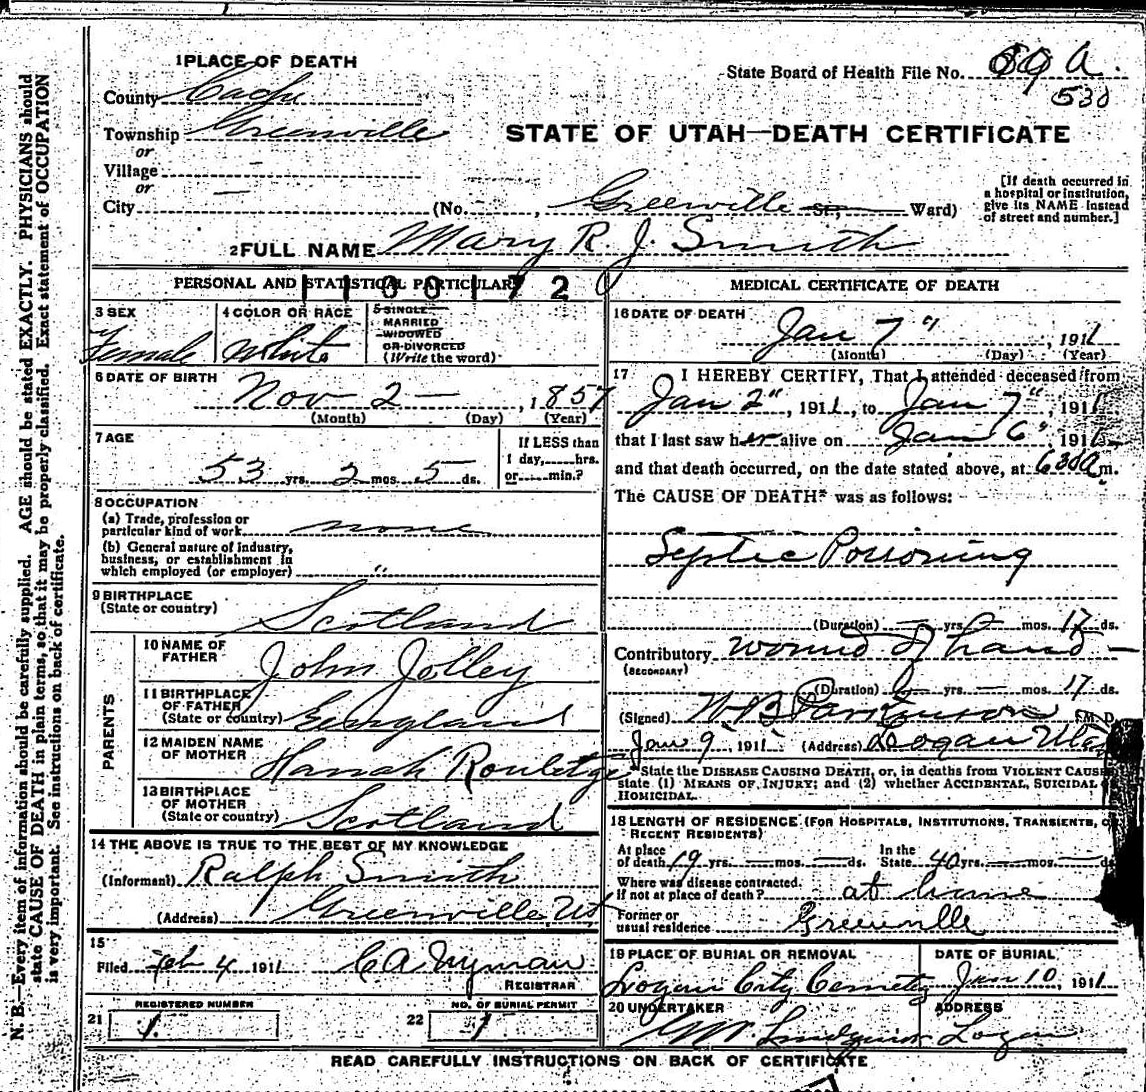 1 PLACE OF DEATH
State Board of Health File No. 69 A.
530
County Cache
Township Greenville
or
Village -
or
City - (No. , Greenville St.; Ward)
STATE OF UTAH—DEATH CERTIFICATE
[If death occurred in a hospital or institution, give its NAME instead of street and number.]
2 FULL NAME Mary R. J. Smith
PERSONAL AND STATISTICAL PARTICULARS
1100172
3 SEX
Female
4 COLOR OR RACE
White
5 SINGLE
MARRIED
WIDOWED
OR DIVORCED
(Write the word)
6 DATE OF BIRTH
Nov 2 — , 1857
(Month) (Day) (Year)
7 AGE
53 yrs. 2 mos. 5 ds.
If LESS than
1 day, hrs.
or min.?
8 OCCUPATION
(a) Trade, profession or
particular kind of work none
(b) General nature of industry,
business, or establishment in
which employed (or employer) "
9 BIRTHPLACE
(State or country) Scotland
PARENTS
10 NAME OF
FATHER John Jolley
11 BIRTHPLACE
OF FATHER
(State or country) England
12 MAIDEN NAME
OF MOTHER Hanah
13 BIRTHPLACE
OF MOTHER
(State or country) Scotland
14 THE ABOVE IS TRUE TO THE BEST OF MY KNOWLEDGE
(Informant) Ralph Smith
(Address) Greenville Ut
15
Filed Feb 4 1911 C A Nyman
REGISTRAR
REGISTERED NUMBER
21 1.
NO. OF BURIAL PERMIT
22 1
MEDICAL CERTIFICATE OF DEATH
16 DATE OF DEATH
Jan 7" , 1911
(Month) (Day) (Year)
17 I HEREBY CERTIFY, That I attended deceased from
Jan 2" , 1911, to Jan 7" , 1911
that I last saw her alive on Jan 6" , 1911
and that death occurred, on the date stated above, at 630 a m.
The CAUSE OF DEATH* was as follows:
Septic Poisoning
(Duration) — yrs. — mos. 17 ds.
Contributory wound of hand —
(SECONDARY)
(Duration) — yrs. — mos. 17 ds.
(Signed) W B Parkinson M. D.
Jan 9, 1911 (Address) Logan Utah
*State the DISEASE CAUSING DEATH, or, in deaths from VIOLENT CAUSES
state (1) MEANS OF INJURY; and (2) whether ACCIDENTAL, SUICIDAL or
HOMICIDAL.
18 LENGTH OF RESIDENCE (FOR HOSPITALS, INSTITUTIONS, TRANSIENTS, OR
RECENT RESIDENTS)
At place
of death 19 yrs. — mos. — ds.
In the
State 40 yrs. — mos. — ds
Where was disease contracted,
if not at place of death? at home
Former or
usual residence Greenville
19 PLACE OF BURIAL OR REMOVAL
Logan City Cemetery
DATE OF BURIAL
Jan 10, 1911
20 UNDERTAKER
ADDRESS
Logan
READ CAREFULLY INSTRUCTIONS ON BACK OF CERTIFICATE
N. B.—Every item of information should be carefully supplied. AGE should be stated EXACTLY. PHYSICIANS should
state CAUSE OF DEATH in plain terms, so that it may be properly classified. Exact statement of OCCUPATION
is very important. See instructions on back of certificate.